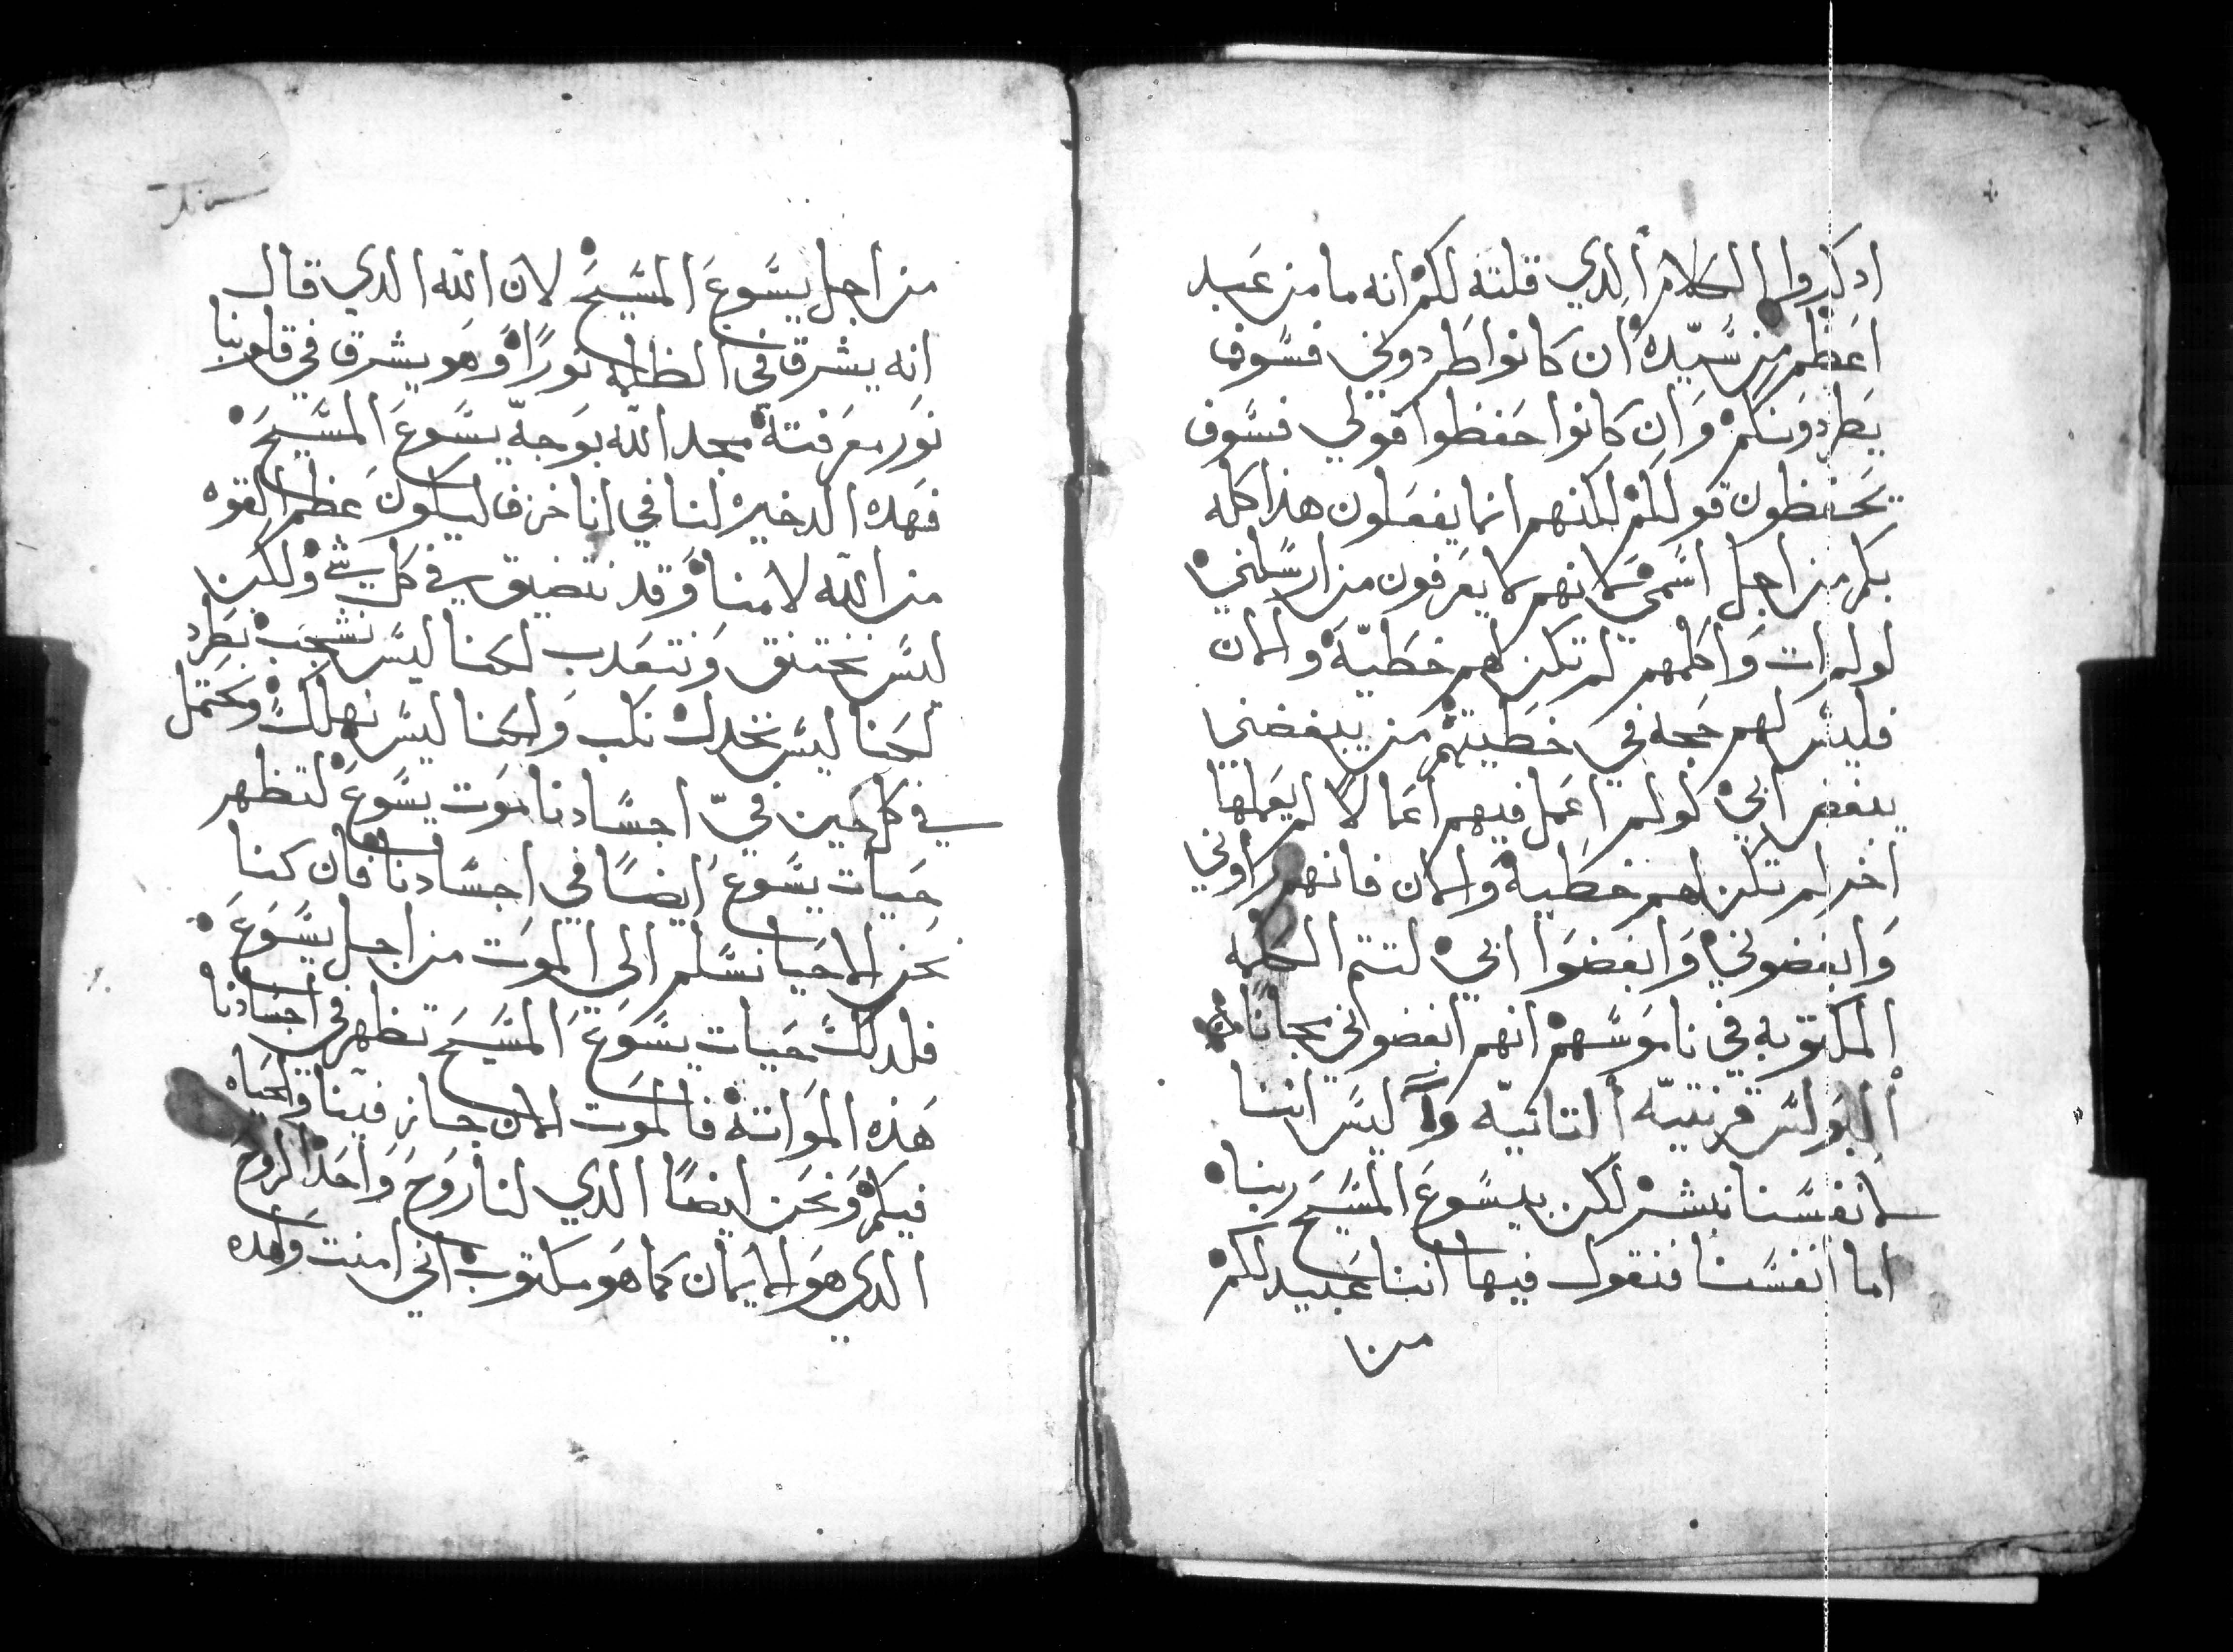 ادكروا الكلام الدي قلته لكم انه ما من عبد
اعظم من سيده ان كانوا طردوني فسوف
يطردونكم وان كانوا حفظوا قولي فسوف
يحفظون قولكم لكنهم انما يفعلون هذا كله
بكم من اجل اسمي لانهم لا يعرفون من ارسلني
لو لم ات واكلمهم لم تكن لهم خطية والان
فليس لهم حجه في خطيتهم من يبغضني
يبغض ابي لو لم اعمل فيهم اعمالا لم يعملها
اخر لم تكن لهم خطية والان فانهم راوني
وابغضوني وابغضوا ابي لتتم الكلمه
المكتوبه في ناموسهم انهم ابغضوني مجانا
البولس قرنتيه التانيه ليس اننا
لانفسنا نبشر لكن بيسوع المسيح ربنا
اما انفسنا فنقول فيها اننا عبيد لكم
من
من اجل يسوع المسيح لان الله الدي قال
انه يشرق في الظلمه نورا وهو يشرق في قلوبنا
نور معرفتة مجد الله بوجه يسوع المسيح
فهده الدخيره لنا في انا خزف ليكون عظم القوه
من الله لا منا وقد نتضيق في كل شي ولكن
ليس نختنق ونتعدب لكننا ليس نشجب نطرد
لكننا ليس نخدل نكب ولكننا ليس نهلك ونحتمل
في كل حين في اجسادنا موت يسوع لتظهر
حيات يسوع ايضا في اجسادنا فان كنا
نحن الاحيا نسلم الي الموت من اجل يسوع
فلدلك حيات يسوع المسيح تظهر في اجسادنا
هذه المواتة فالموت الان جايز فينا والحياه
فيكم ونحن ايضا الدي لنا روح واحد الروح
الدي هو الايمان كما هو مكتوب اني امنت ولهده